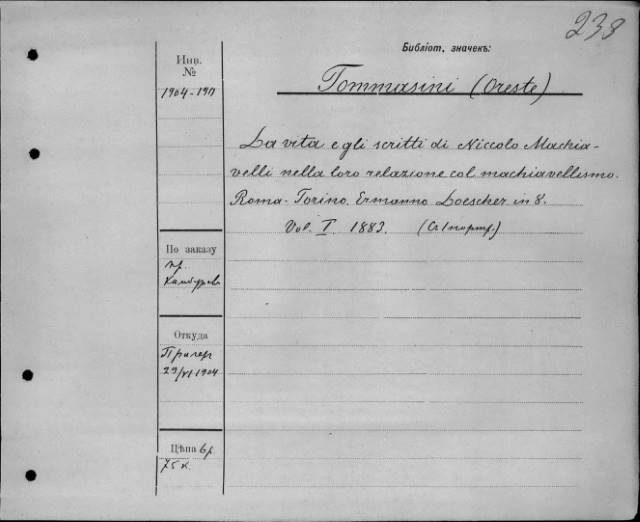 238
Библіот. значекъ:
Инв.
№
1904-190
Tommasini (Oreste)
La vita e gli scritti di Niccolo Machia-
velli nella loro relazione col machiavellismo.
Roma-Torino. Ermanno Loescher in 8.
Vol. I 1883. (Съ 1 портр.)
По заказу
пр.
Откуда
Прагер
29/VI 1904
Цѣна 6 р.
75 к.